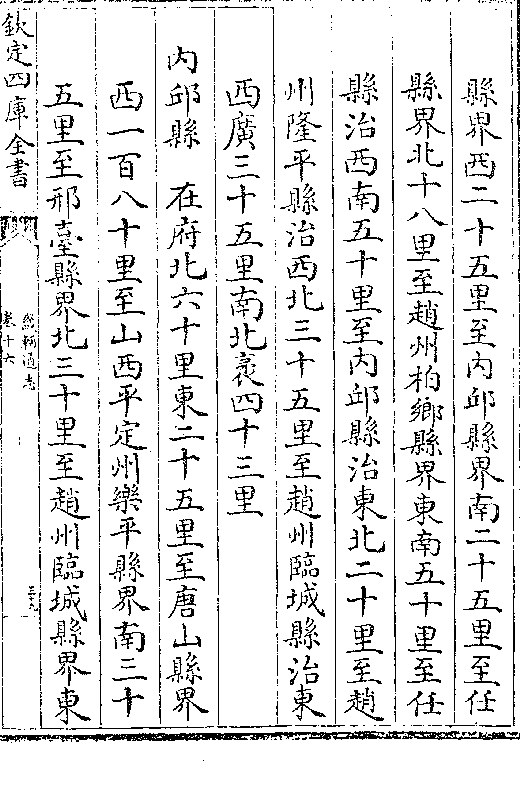 縣界西二十五里至内邱縣界南二十五里至任
縣界北十八里至趙州柏鄉縣界東南五十里至任
縣治西南五十里至内邱縣治東北二十里至趙
州隆平縣治西北三十五里至趙州臨城縣治東
西廣三十五里南北袤四十三里
内邱縣　在府北六十里東二十五里至唐山縣界
西一百八十里至山西平定州樂平縣界南三十
五里至邢臺縣界北三十里至趙州臨城縣界東
欽定四庫全書
畿輔通志
卷十六